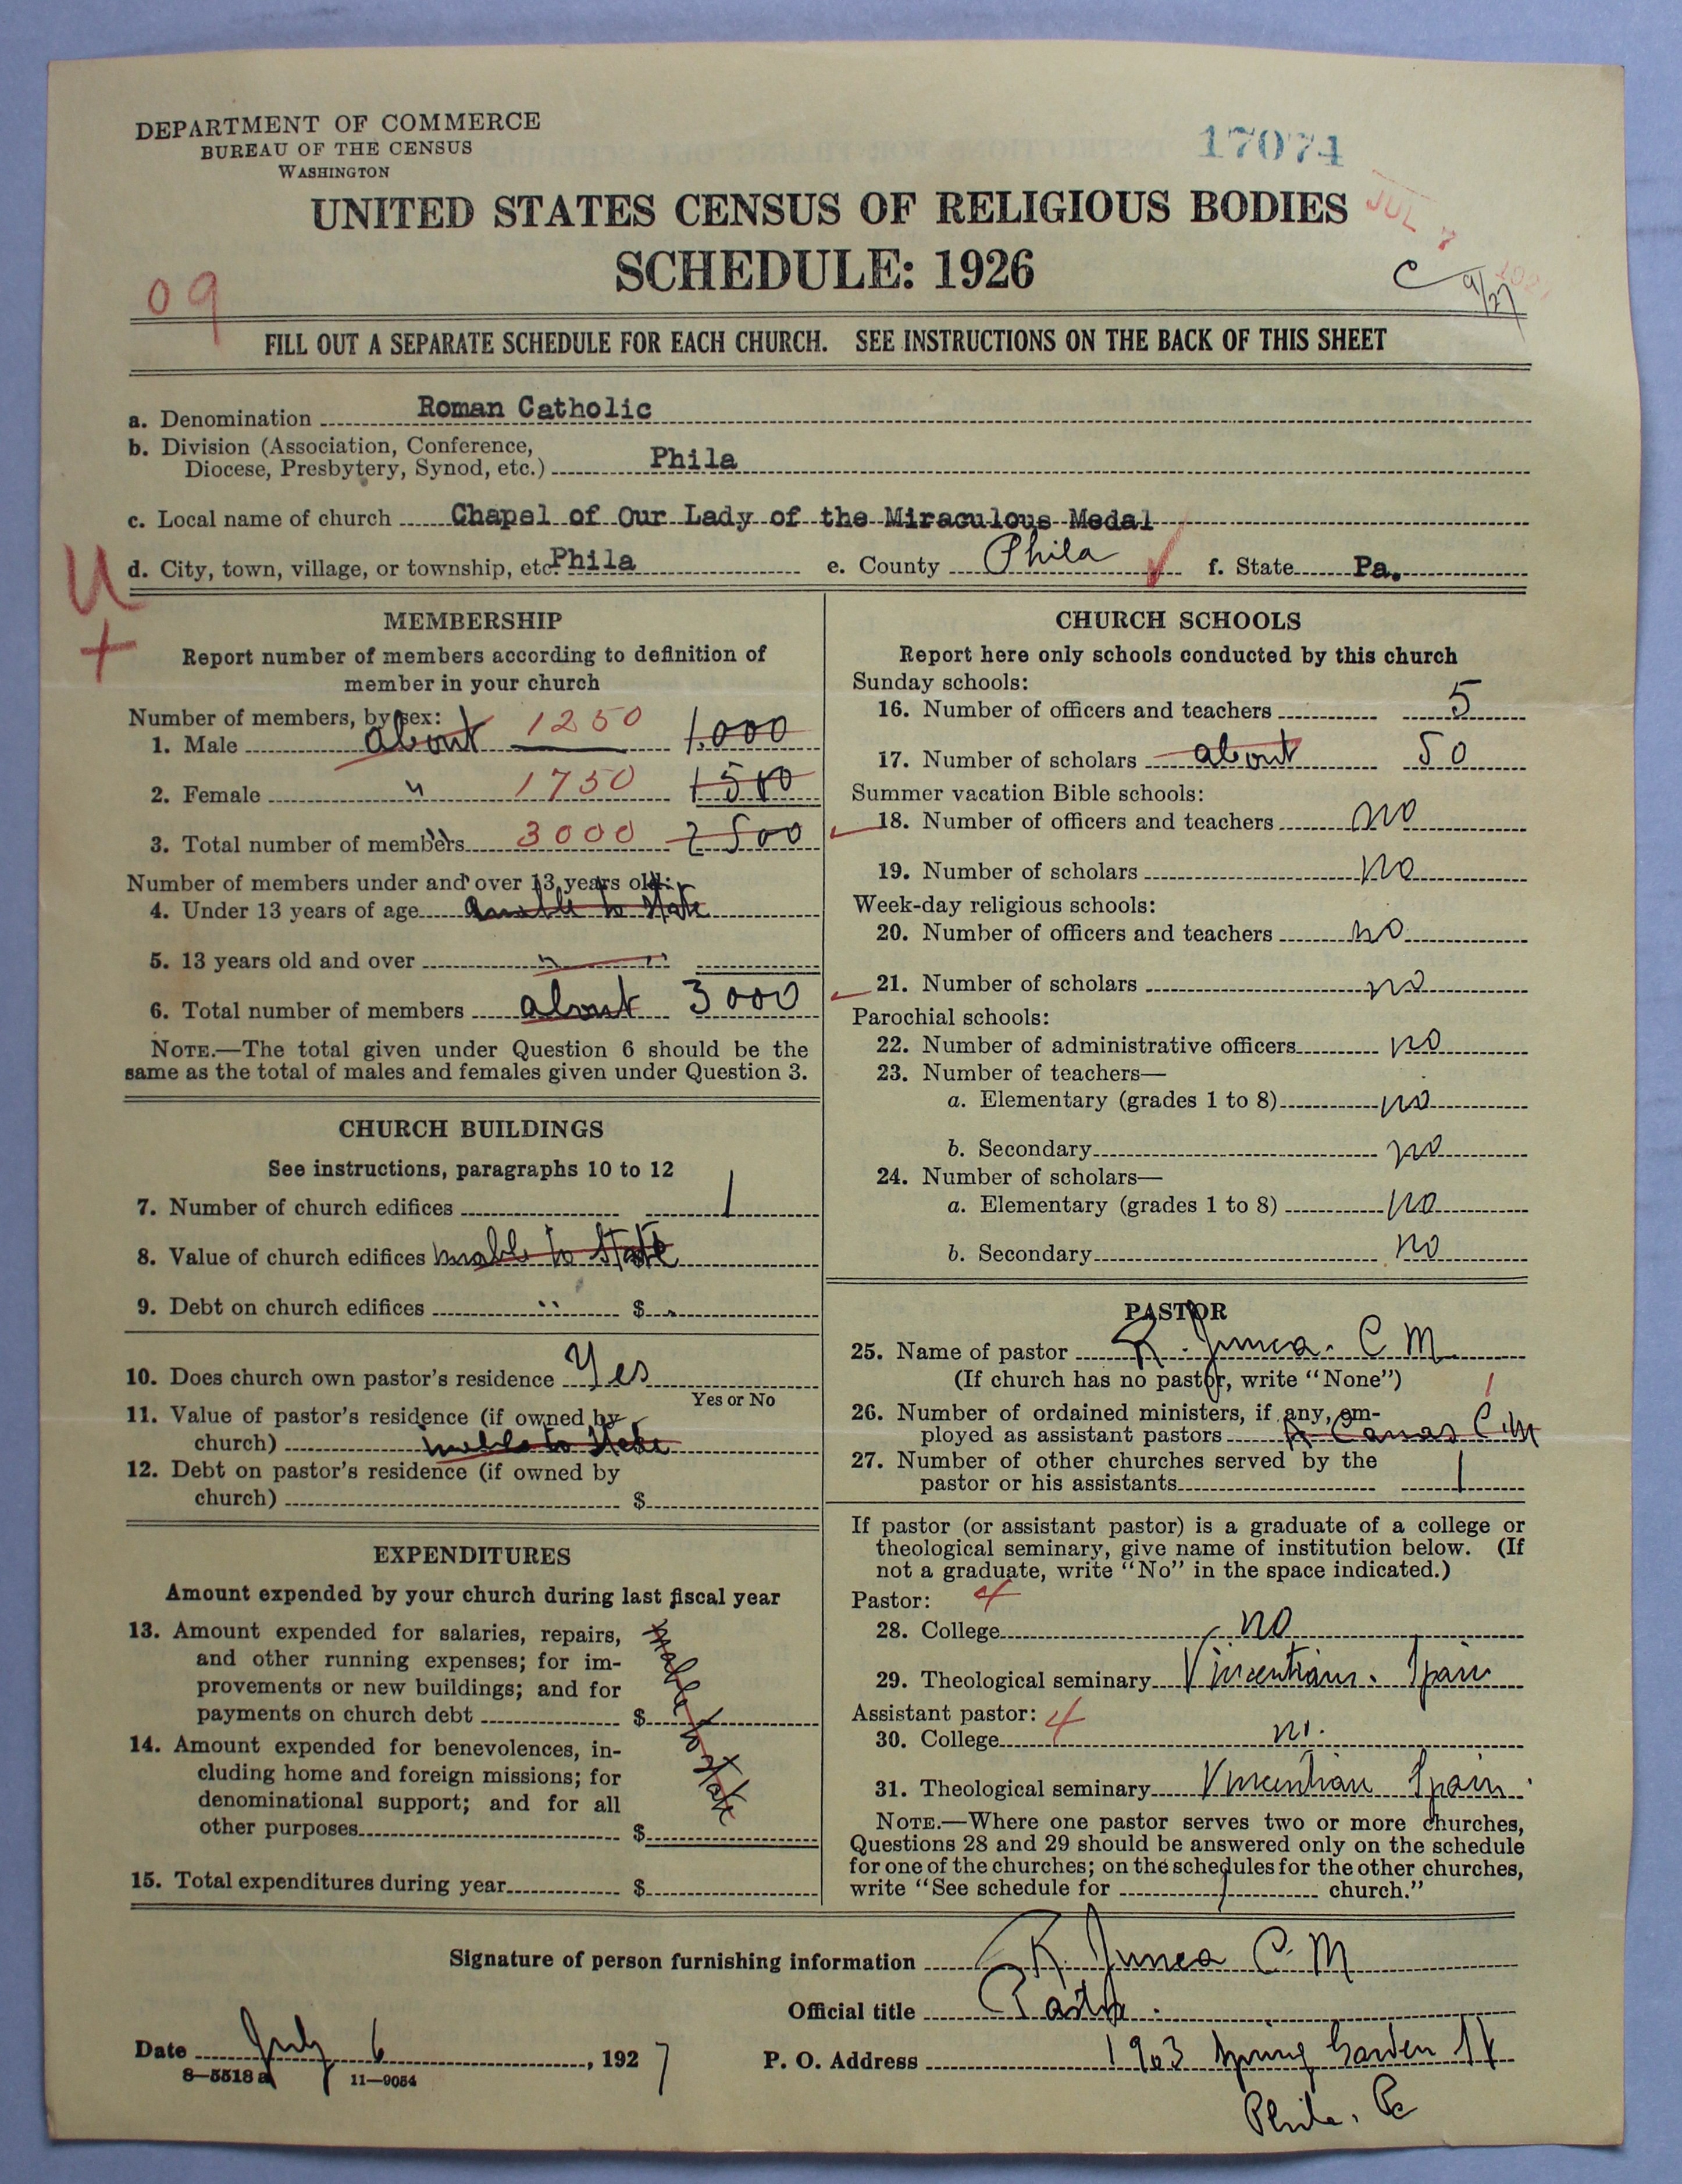 DEPARTMENT OF COMMERCE
BUREAU OF THE CENSUS
WASHINGTON
17074
JUL 7
UNITED STATES CENSUS OF RELIGIOUS BODIES
SCHEDULE: 1926
C 9/27
09
FILL OUT A SEPARATE SCHEDULE FOR EACH CHURCH. SEE INSTRUCTIONS ON THE BACK OF THIS SHEET
a. Denomination Roman Catholic
b. Division (Association, Conference,
Diocese, Presbytery, Synod, etc.) Phila
c. Local name of church Chapel of Our Lady of the Miraculous Medal
d. City, town, village, or township, etc. Phila e. County Phila f. State Pa.
U
+
MEMBERSHIP
Report number of members according to definition of
member in your church
Number of members, by sex:
1. Male about 1250 1,000
2. Female " 1750 1500
3. Total number of members 3000 2500
Number of members under and over 13 years old:
4. Under 13 years of age unable to State
5. 13 years old and over " "
6. Total number of members about 3000
NOTE.—The total given under Question 6 should be the
same as the total of males and females given under Question 3.
CHURCH BUILDINGS
See instructions, paragraphs 10 to 12
7. Number of church edifices 1
8. Value of church edifices unable to State
9. Debt on church edifices " $
10. Does church own pastor's residence Yes
Yes or No
11. Value of pastor's residence (if owned by
church) unable to State
12. Debt on pastor's residence (if owned by
church) $
EXPENDITURES
Amount expended by your church during last fiscal year
13. Amount expended for salaries, repairs,
and other running expenses; for im-
provements or new buildings; and for
payments on church debt $
unable to State
14. Amount expended for benevolences, in-
cluding home and foreign missions; for
denominational support; and for all
other purposes $
15. Total expenditures during year $
CHURCH SCHOOLS
Report here only schools conducted by this church
Sunday schools:
16. Number of officers and teachers 5
17. Number of scholars about 50
Summer vacation Bible schools:
18. Number of officers and teachers no
19. Number of scholars no
Week-day religious schools:
20. Number of officers and teachers no
21. Number of scholars no
Parochial schools:
22. Number of administrative officers no
23. Number of teachers—
a. Elementary (grades 1 to 8) no
b. Secondary no
24. Number of scholars—
a. Elementary (grades 1 to 8) no
b. Secondary no
PASTOR
25. Name of pastor R. C M
(If church has no pastor, write "None")
1
26. Number of ordained ministers, if any, em-
ployed as assistant pastors Canas C.M
27. Number of other churches served by the
pastor or his assistants 1
If pastor (or assistant pastor) is a graduate of a college or
theological seminary, give name of institution below. (If
not a graduate, write "No" in the space indicated.)
Pastor: 4
28. College no
29. Theological seminary Vincentians. Spain
Assistant pastor: 4
30. College no.
31. Theological seminary Vincentian Spain.
NOTE.—Where one pastor serves two or more churches,
Questions 28 and 29 should be answered only on the schedule
for one of the churches; on the schedules for the other churches,
write "See schedule for church."
Signature of person furnishing information R. C. M
Official title Pastor.
Date July 6, 1927 P. O. Address 1903 Spring Garden St
8—5518 a 11—9054
Phila. Pa